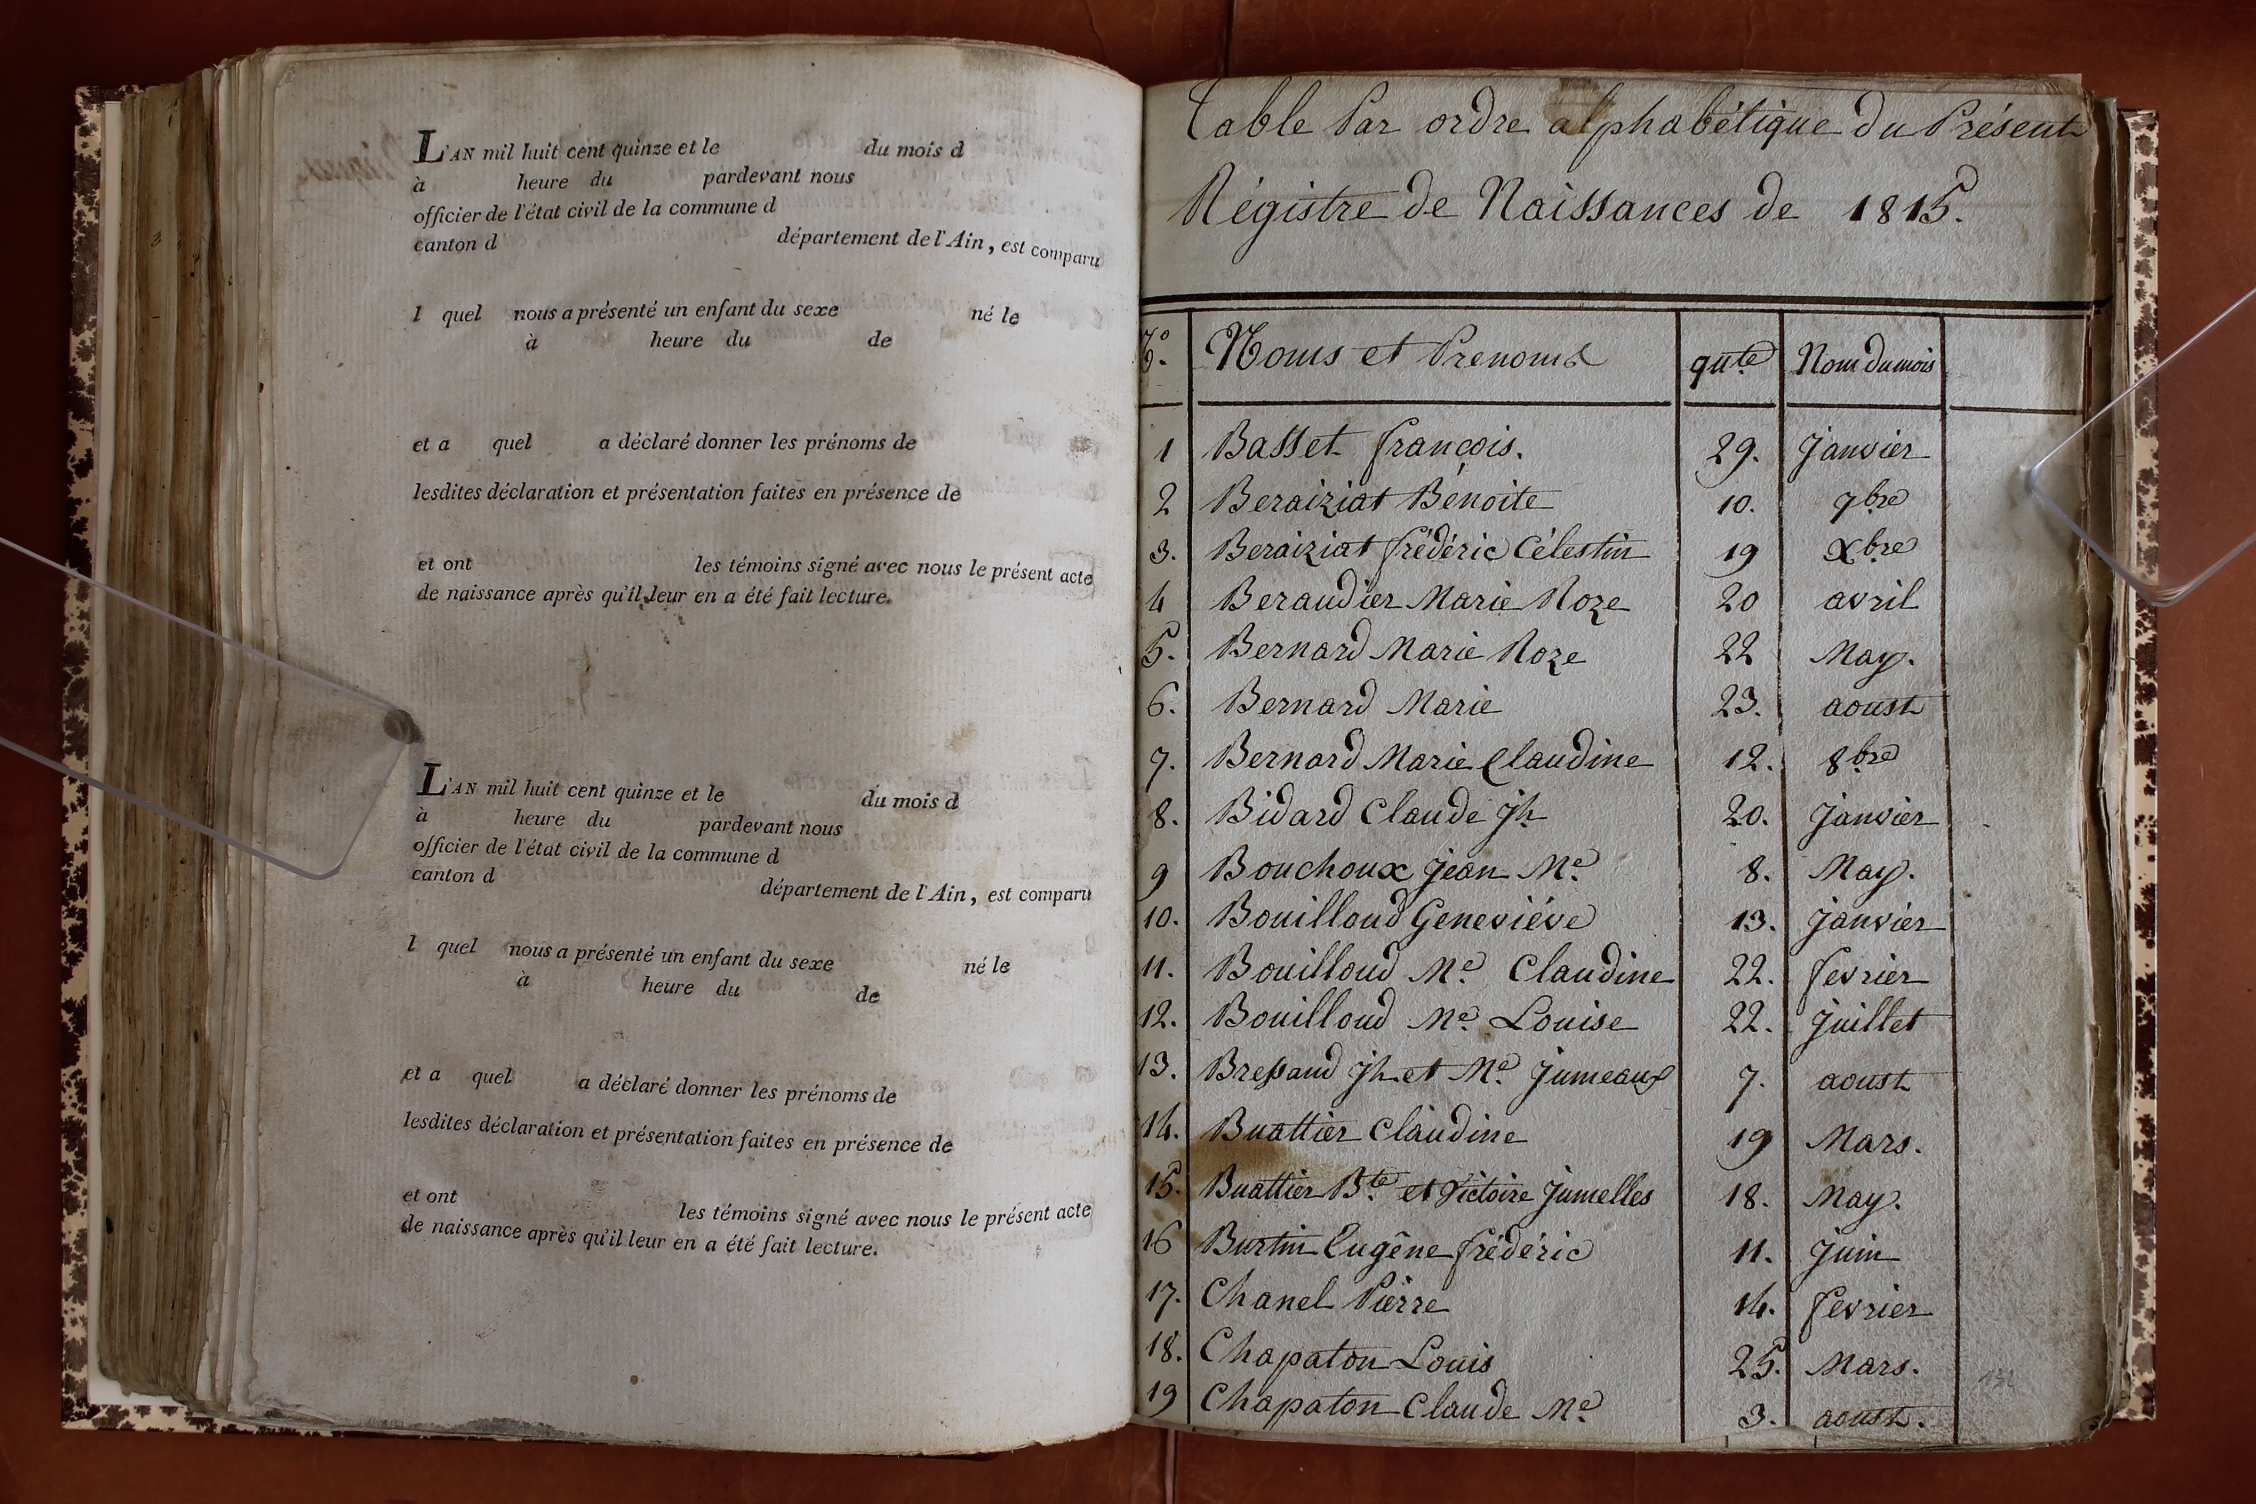 L'AN mil huit cent quinze et le du mois d
à heure du pardevant nous
officier de l'état civil de la commune d
canton d département de l'Ain, est comparu
l quel nous a présenté un enfant du sexe né le
à heure du de
et a quel a déclaré donner les prénoms de
lesdites déclaration et présentation faites en présence de
et ont les témoins signé avec nous le présent acte
de naissance après qu'il leur en a été fait lecture.
L'AN mil huit cent quinze et le du mois d
à heure du pardevant nous
officier de l'état civil de la commune d
canton d département de l'Ain, est comparu
l quel nous a présenté un enfant du sexe né le
à heure du de
et a quel a déclaré donner les prénoms de
lesdites déclaration et présentation faites en présence de
et ont les témoins signé avec nous le présent acte
de naissance après qu'il leur en a été fait lecture.
Table Par ordre alphabétique du Présent
Régistre de Naissances de 1815.
Noms et Prenoms qute Nom du mois
1 Basset françois. 29. Janvier
2 Beraiziat Bénoite 10. 9bre
3. Beraiziat frédéric Célestin 19 Xbre
4 Beraudier Marie Roze 20 avril
5. Bernard Marie Roze 22 May.
6. Bernard Marie 23. aoust
7. Bernard Marie Claudine 12. 8bre
8. Bidard Claude Jh 20. Janvier
9 Bouchoux Jean Me. 8. May.
10. Bouilloud Geneviéve 13. Janvier
11. Bouilloud Me. Claudine 22. fevrier
12. Bouilloud Me. Louise 22. Juillet
13. Bressand Jh. et Me. Jumeaux 7. aoust
14. Buattier Claudine 19 Mars.
15. Buattier Bte. et Victoire Jumelles 18. May.
16 Burtin Eugêne frédéric 11. Juin
17. Chanel Pierre 14. fevrier
18. Chapaton Louis 25. Mars.
19 Chapaton Claude Me. 3. aoust.